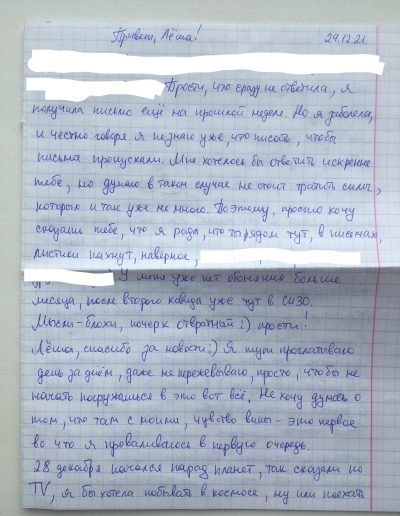 Привет, Лёша! 29.12.21.
Прости, что сразу не ответила, я
получила письмо ещё на прошлой неделе. Но я заболела,
и честно говоря я не знаю уже, что писать, чтобы
письма пропускали. Мне хотелось бы ответить искренне
тебе, но думаю в таком случае не стоит тратить силы,
которых и так уже не много. Поэтому, просто хочу
сказать тебе, что я рада, что ты рядом тут, в письмах,
листики пахнут, наверное,
У меня уже нет обоняния больше
месяца, после второго ковида уже тут в СИЗО.
Мысли-блохи, почерк отвратный :) прости!
Лёша, спасибо за новости:) Я тут проглатываю
день за днём, даже не пережёвываю, просто, чтобы не
начать погружаться в это вот всё. Не хочу думать о
том, что там с моими, чувство вины - это первое
во что я проваливаюсь в первую очередь.
28 декабря начался парад планет, так сказали по
TV, я бы хотела побывать в космосе, ну или поехать